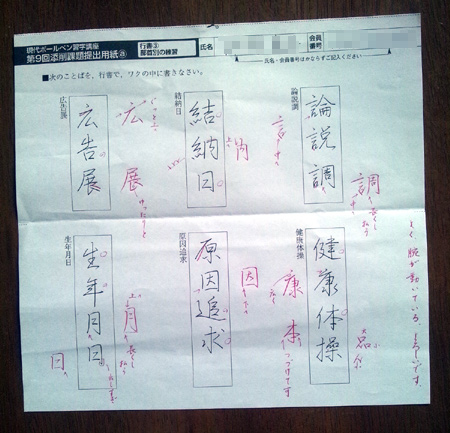 現代ボールペン習字講座
第9回添削課題提出用紙
行書③
部首別の練習
氏名
会員番号
氏名・会員番号はかならずご記入ください
■次のことばを、行書で、ワクの中に書きなさい。
論説調
論説調
言
調
結納日
結納日
内
広告展
広告展
広
展
ゆったりと
健康体操
健康体操
康
本
つづけて可
原因追求
原因追求
因
生年月日
生年月日
月
日
よく腕が動いている、よろしいです。